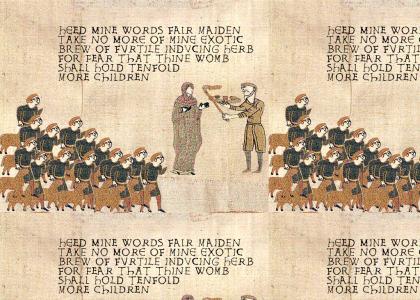 hEED MINE WORDS FAIR MAIDEN
TAKE NO MORE OF MINE EXOTIC
BREW OF FVRTILE INDVCING hERB
FOR FEAR THAT THINE WOMB
ShALL hOLD TENFOLD
MORE ChILDREN
hEED MINE WORDS
TAKE NO MORE OF
BREW OF
FOR FEAR THAT
ShALL hOLD
MORE ChILDREN
hEED MINE WORDS FAIR MAIDEN
TAKE NO MORE OF MINE EXOTIC
BREW OF FVRTILE INDVCING hERB
FOR FEAR THAT THINE WOMB
ShALL hOLD TENFOLD
MORE ChILDREN
hEED MINE WORDS
TAKE NO MORE OF
BREW OF
FOR FEAR THAT
ShALL hOLD
MORE ChILDREN